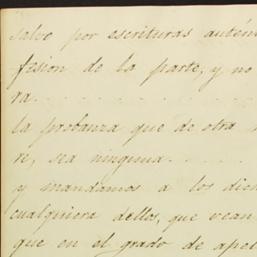 salvo por escrituras autén
fesion de la parte, y no
ra. . . . . . . . . .
la probanza que de otra
re, sea ninguna. . . . .
y mandamos a los dich
cualquiera dellos, que vean
que en el grado de apel